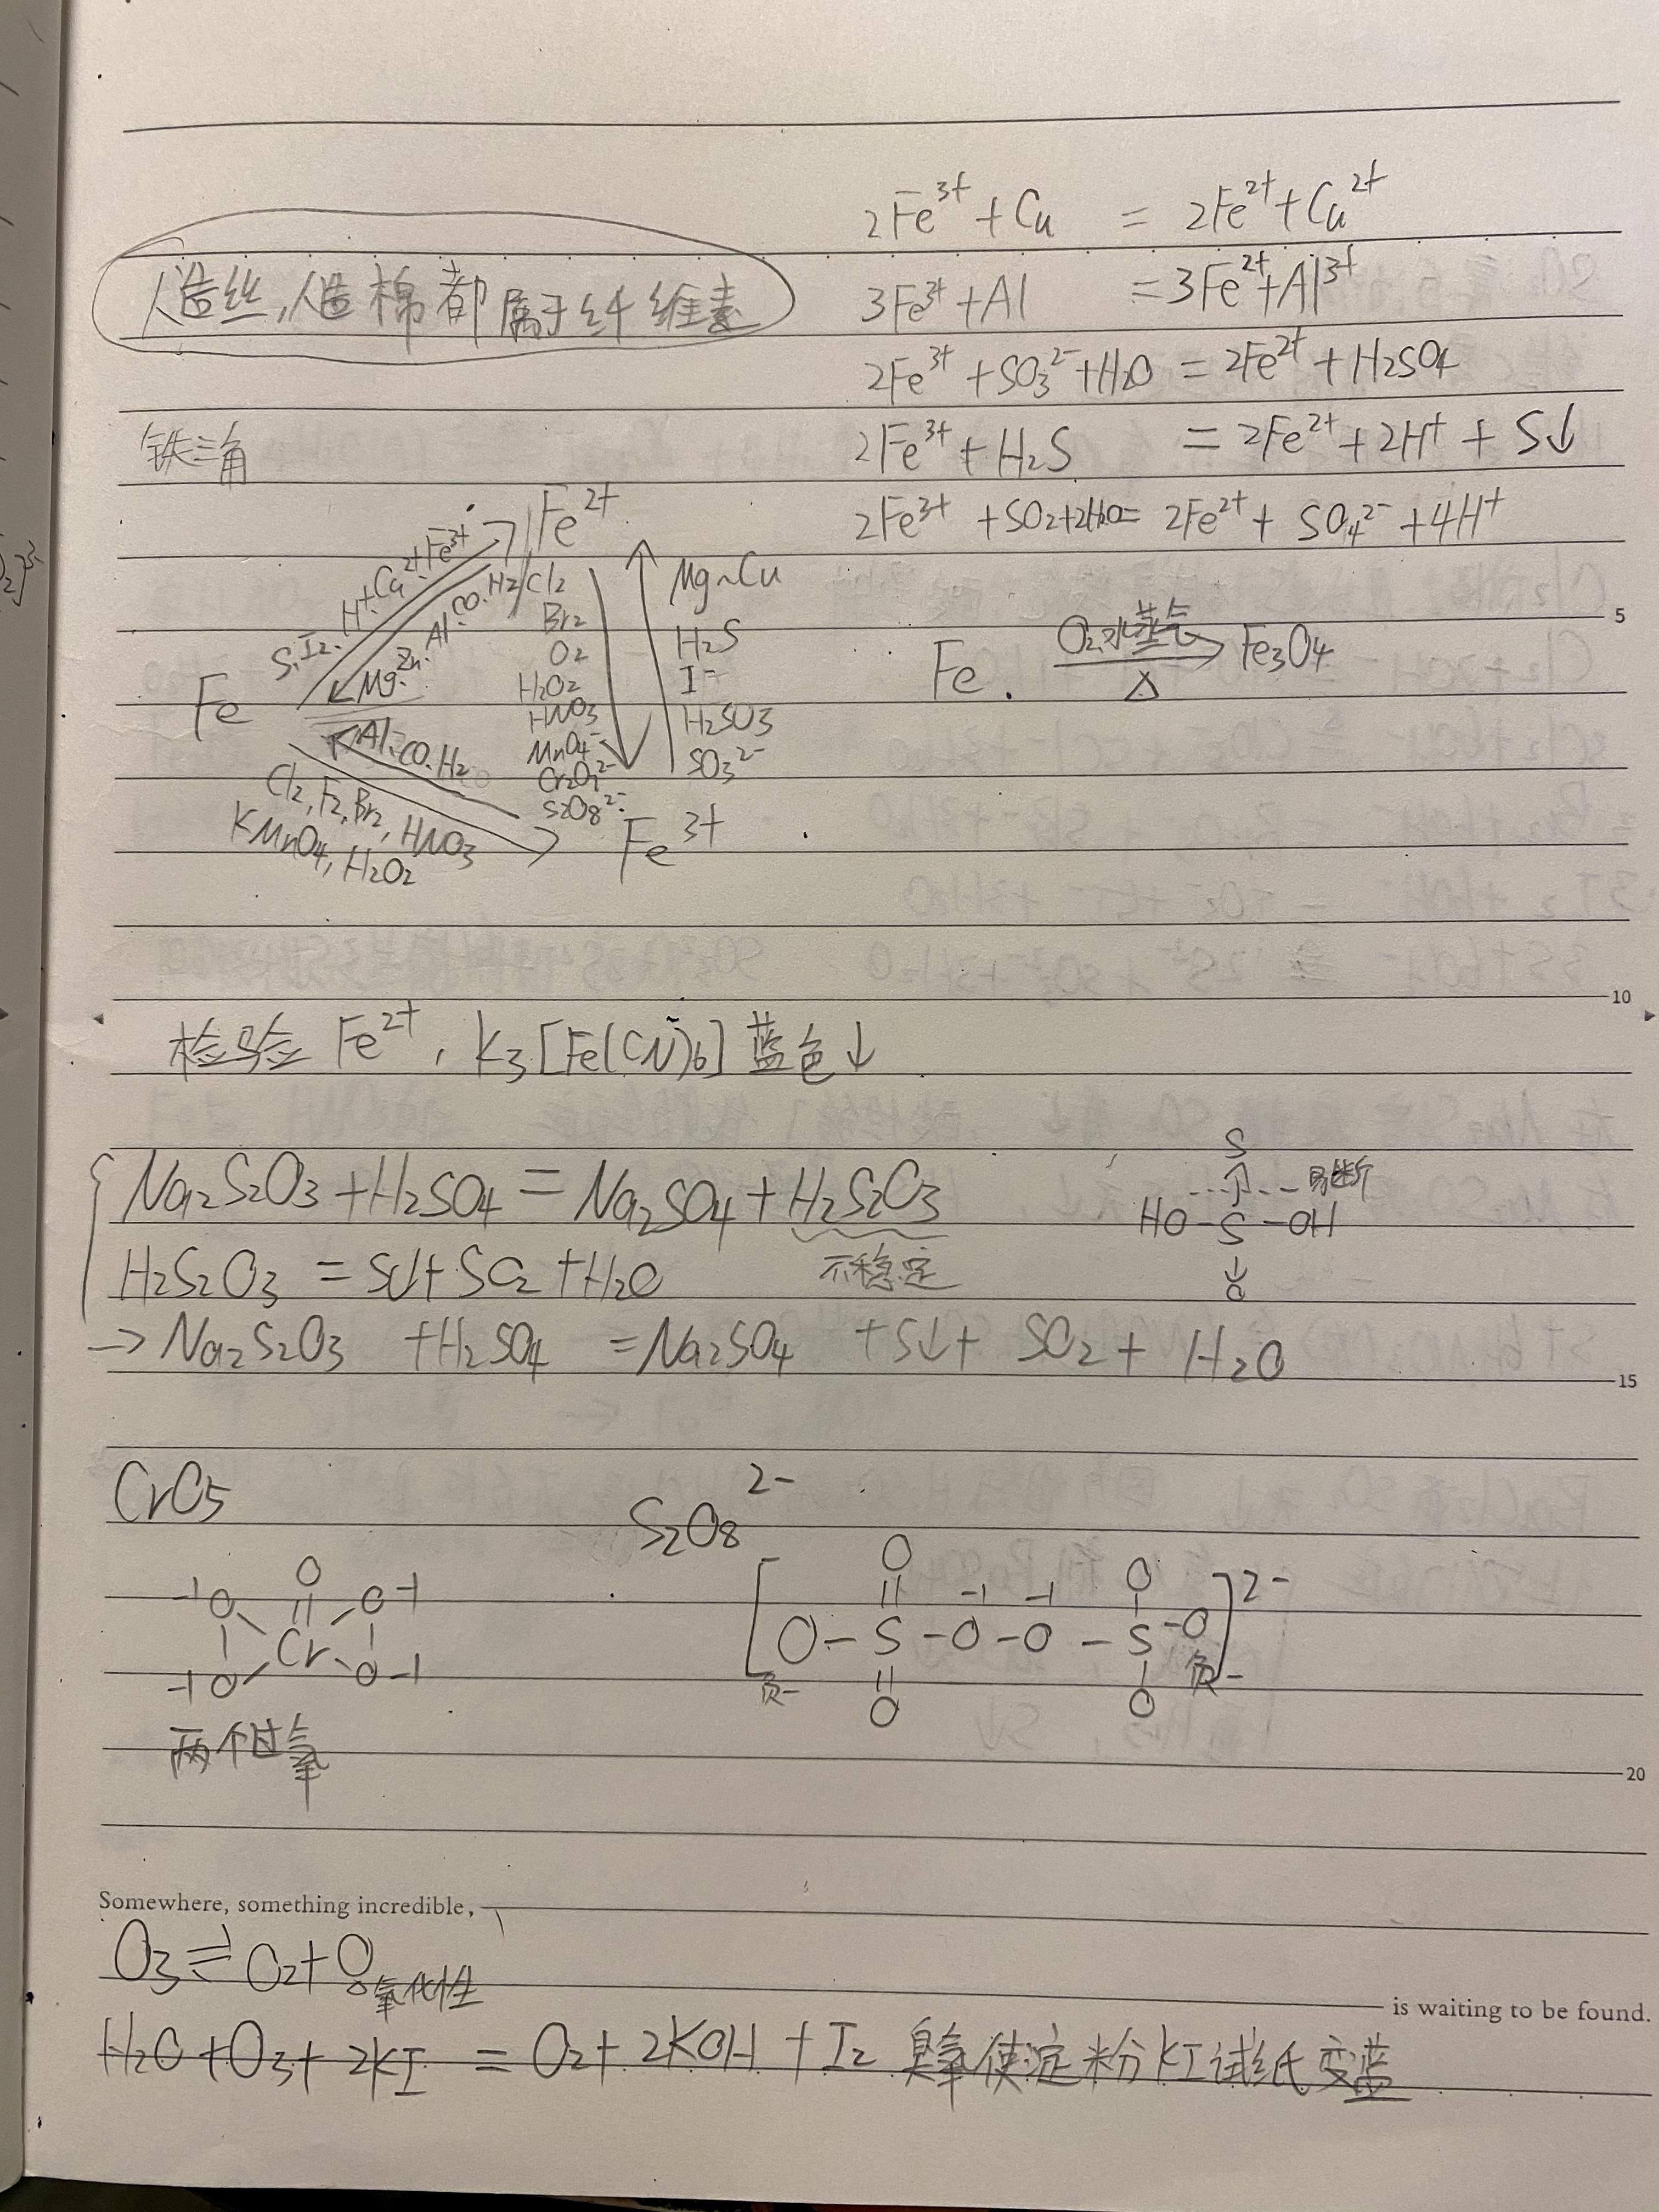 2Fe³⁺ + Cu = 2Fe²⁺ + Cu²⁺
人造丝,人造棉都属于纤维素
3Fe³⁺ + Al = 3Fe²⁺ + Al³⁺
2Fe³⁺ + SO₃²⁻ + H₂O = 2Fe²⁺ + H₂SO₄
铁三角
2Fe³⁺ + H₂S = 2Fe²⁺ + 2H⁺ + S↓
2Fe³⁺ + SO₂ + 2H₂O = 2Fe²⁺ + SO₄²⁻ + 4H⁺
Fe²⁺
S. I₂. H⁺. Cu²⁺. Fe³⁺
Mg. Zn. Al. CO. H₂
Cl₂
Br₂
O₂
H₂O₂
HNO₃
MnO₄⁻
Cr₂O₇²⁻
S₂O₈²⁻
Mg~Cu
H₂S
I⁻
H₂SO₃
SO₃²⁻
Fe
Al. CO. H₂
Cl₂, F₂, Br₂, HNO₃
KMnO₄, H₂O₂
Fe³⁺
Fe. O₂.水蒸气 → △ Fe₃O₄
5
10
检验 Fe²⁺, K₃[Fe(CN)₆] 蓝色↓
Na₂S₂O₃ + H₂SO₄ = Na₂SO₄ + H₂S₂O₃
不稳定
H₂S₂O₃ = S↓ + SO₂ + H₂O
S
↑ 易断
HO-S-OH
↓
O
→ Na₂S₂O₃ + H₂SO₄ = Na₂SO₄ + S↓ + SO₂ + H₂O
15
CrO₅
O
-1 O O -1
Cr
-1 O O -1
两个过氧
S₂O₈²⁻
O O
-1 -1
[O-S-O-O-S-O]²⁻
负一 负一
O O
20
Somewhere, something incredible,
O₃ ⇌ O₂ + O
氧化性
is waiting to be found.
H₂O + O₃ + 2KI = O₂ + 2KOH + I₂ 臭氧使淀粉KI试纸变蓝